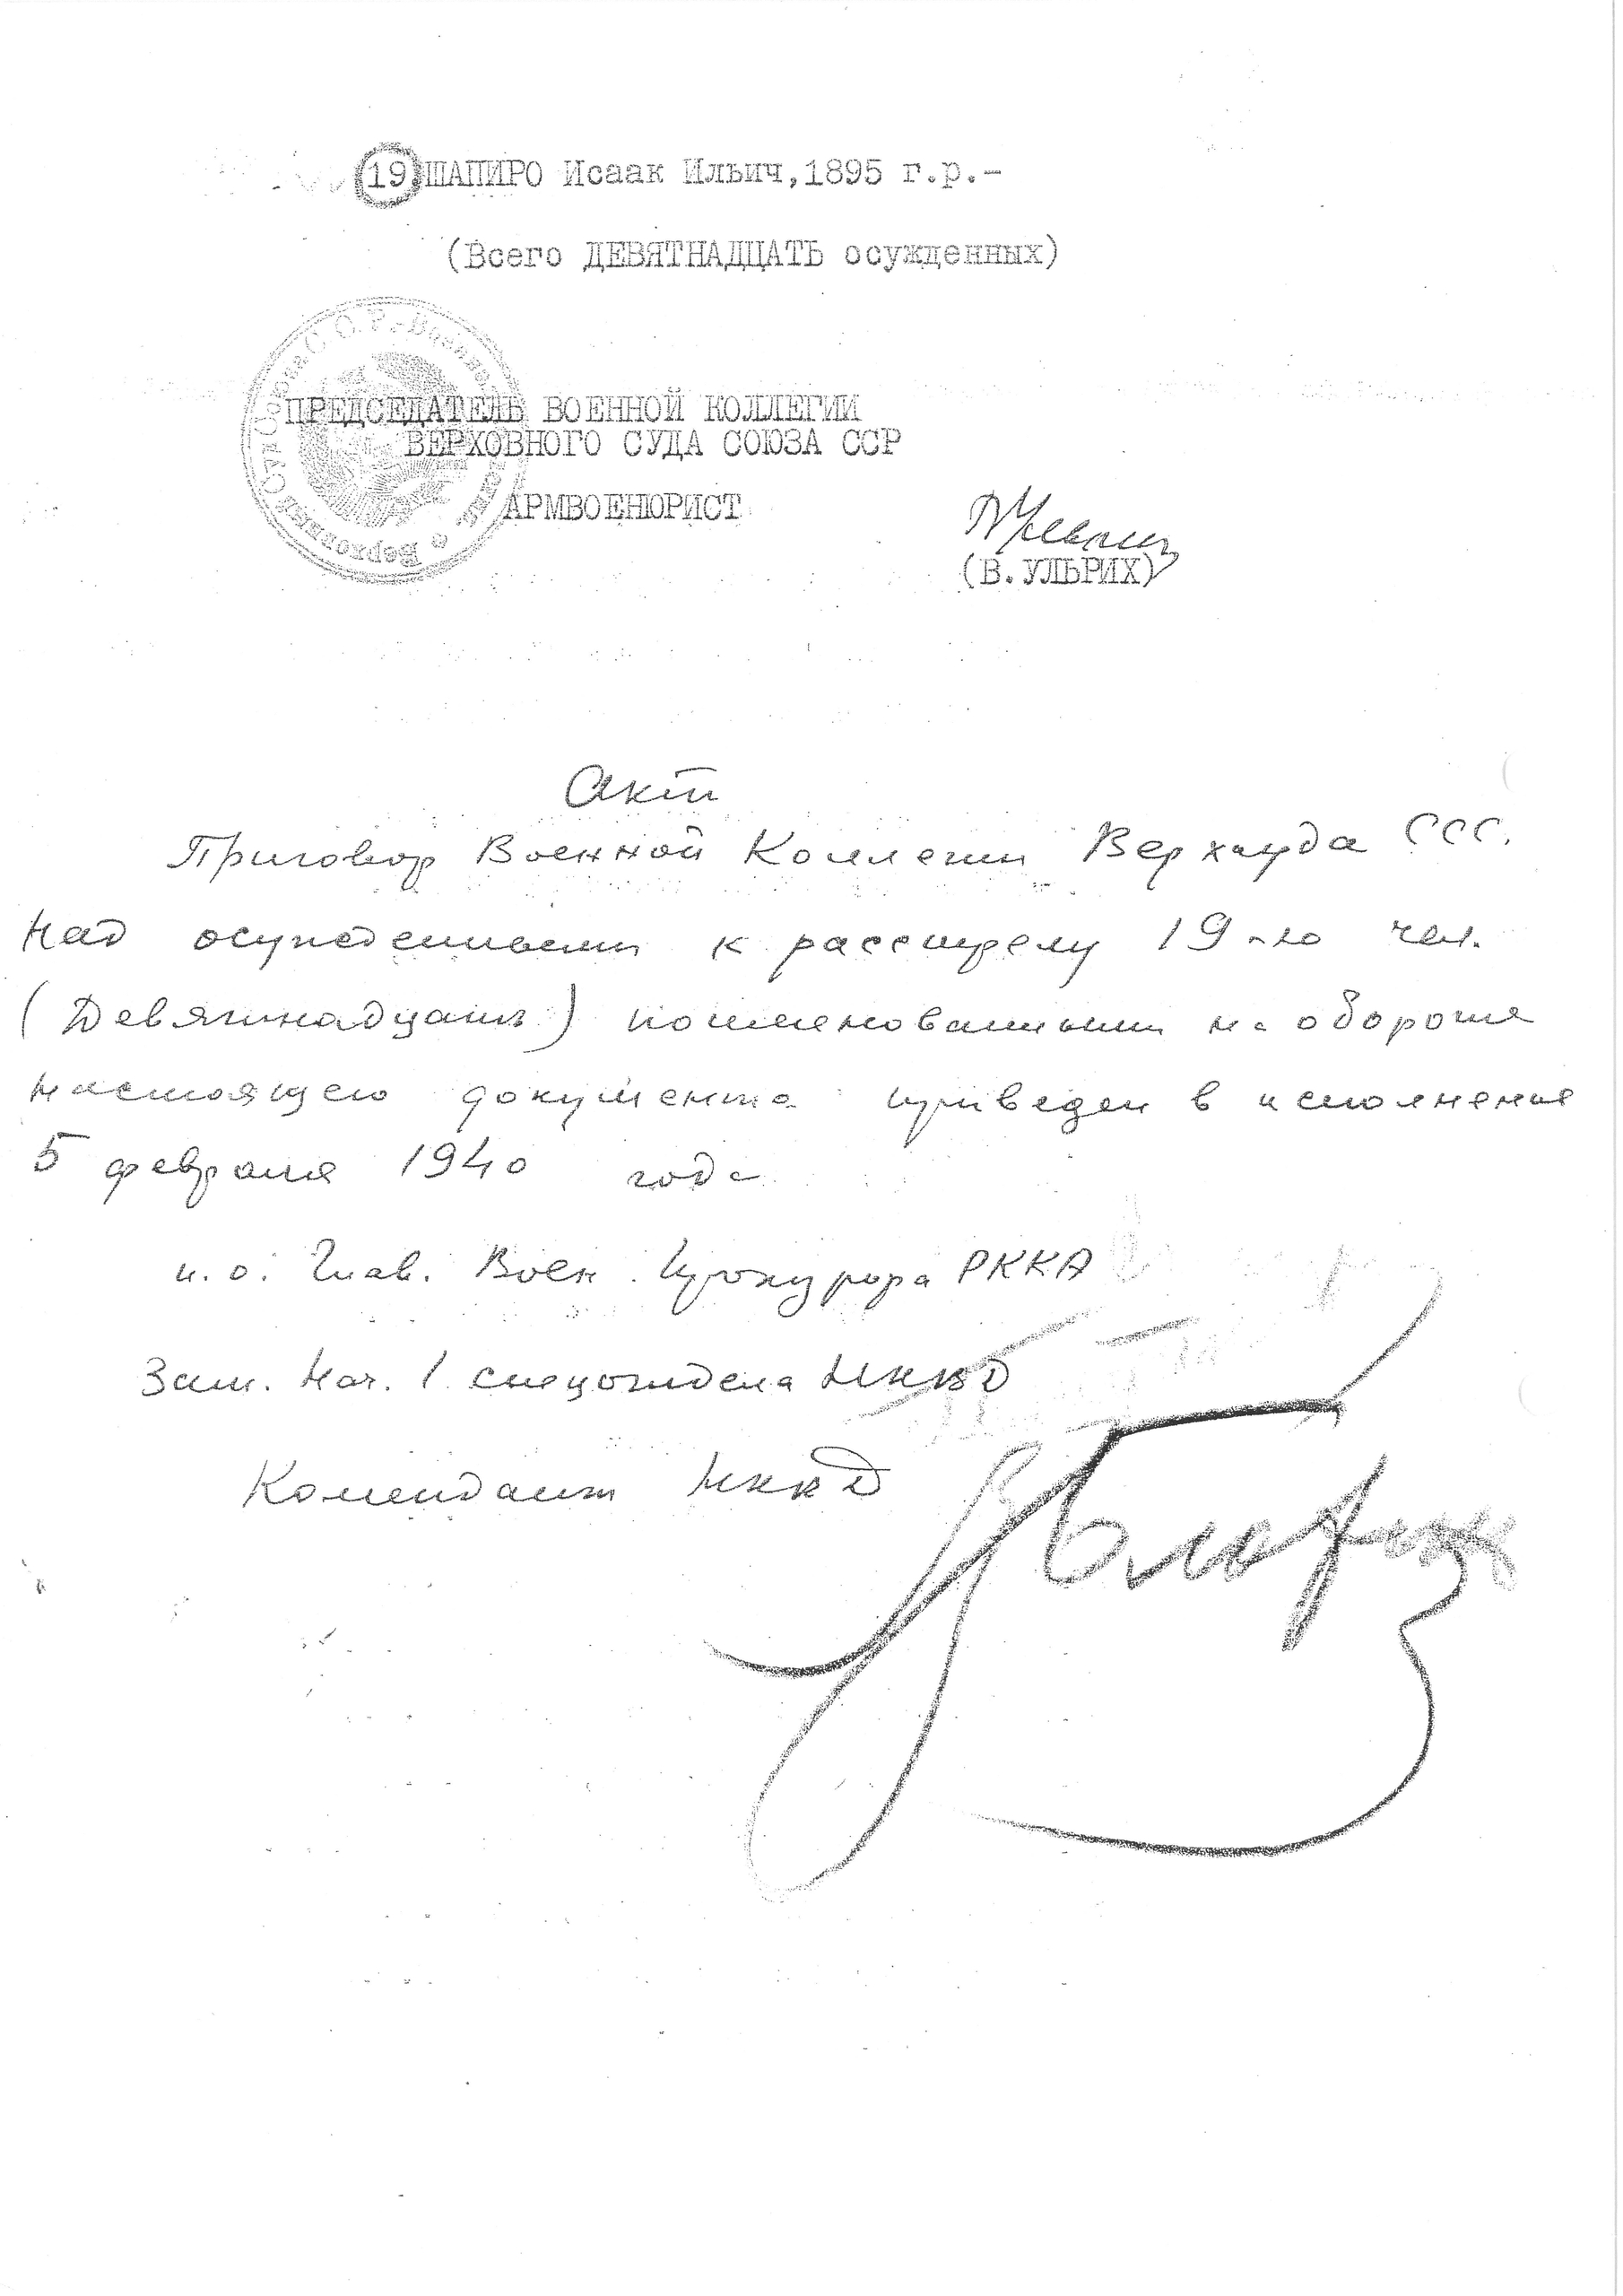 19) ШАПИРО Исаак Ильич,1895 г.р.-
(Всего ДЕВЯТНАДЦАТЬ осужденных)
Верховный Суд Союза С.С.Р.-Военная
ПРЕДСЕДАТЕЛЬ ВОЕННОЙ КОЛЛЕГИИ
ВЕРХОВНОГО СУДА СОЮЗА ССР
АРМВОЕНЮРИСТ
(В.УЛЬРИХ)
Акт
Приговор Военной Коллегии Верхсуда ССС.
над осужденными к расстрелу 19-ю чел.
(Девятнадцать) поименованными на обороте
настоящего документа приведен в исполнение
5 февраля 1940 года
и.о. Глав. Воен. Прокурора РККА
Зам. Нач. 1 спецотдела НКВД
Комендант НКВД